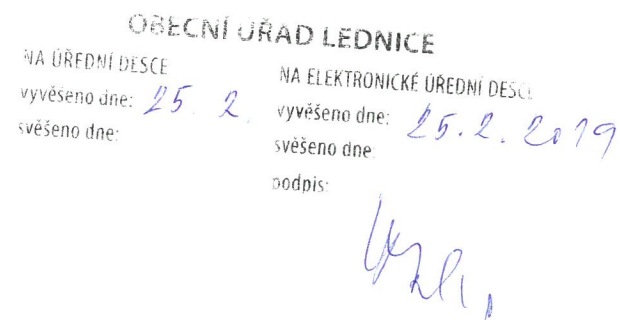 OBECNÍ ÚŘAD LEDNICE
NA ÚŘEDNÍ DESCE
vyvěšeno dne: 25. 2.
svěšeno dne:
NA ELEKTRONICKÉ ÚŘEDNÍ DESCE
vyvěšeno dne: 25.2.2019
svěšeno dne:
podpis: